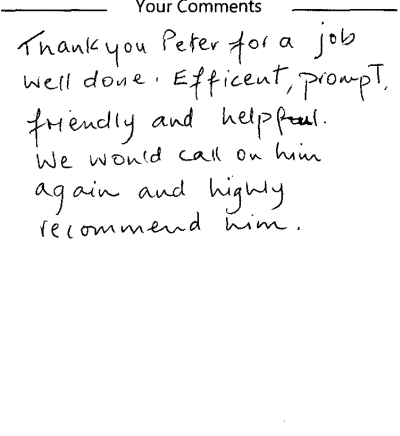 Your Comments
Thank you Peter for a job
well done. Efficent, prompt,
friendly and helpful.
We would call on him
again and highly
recommend him.